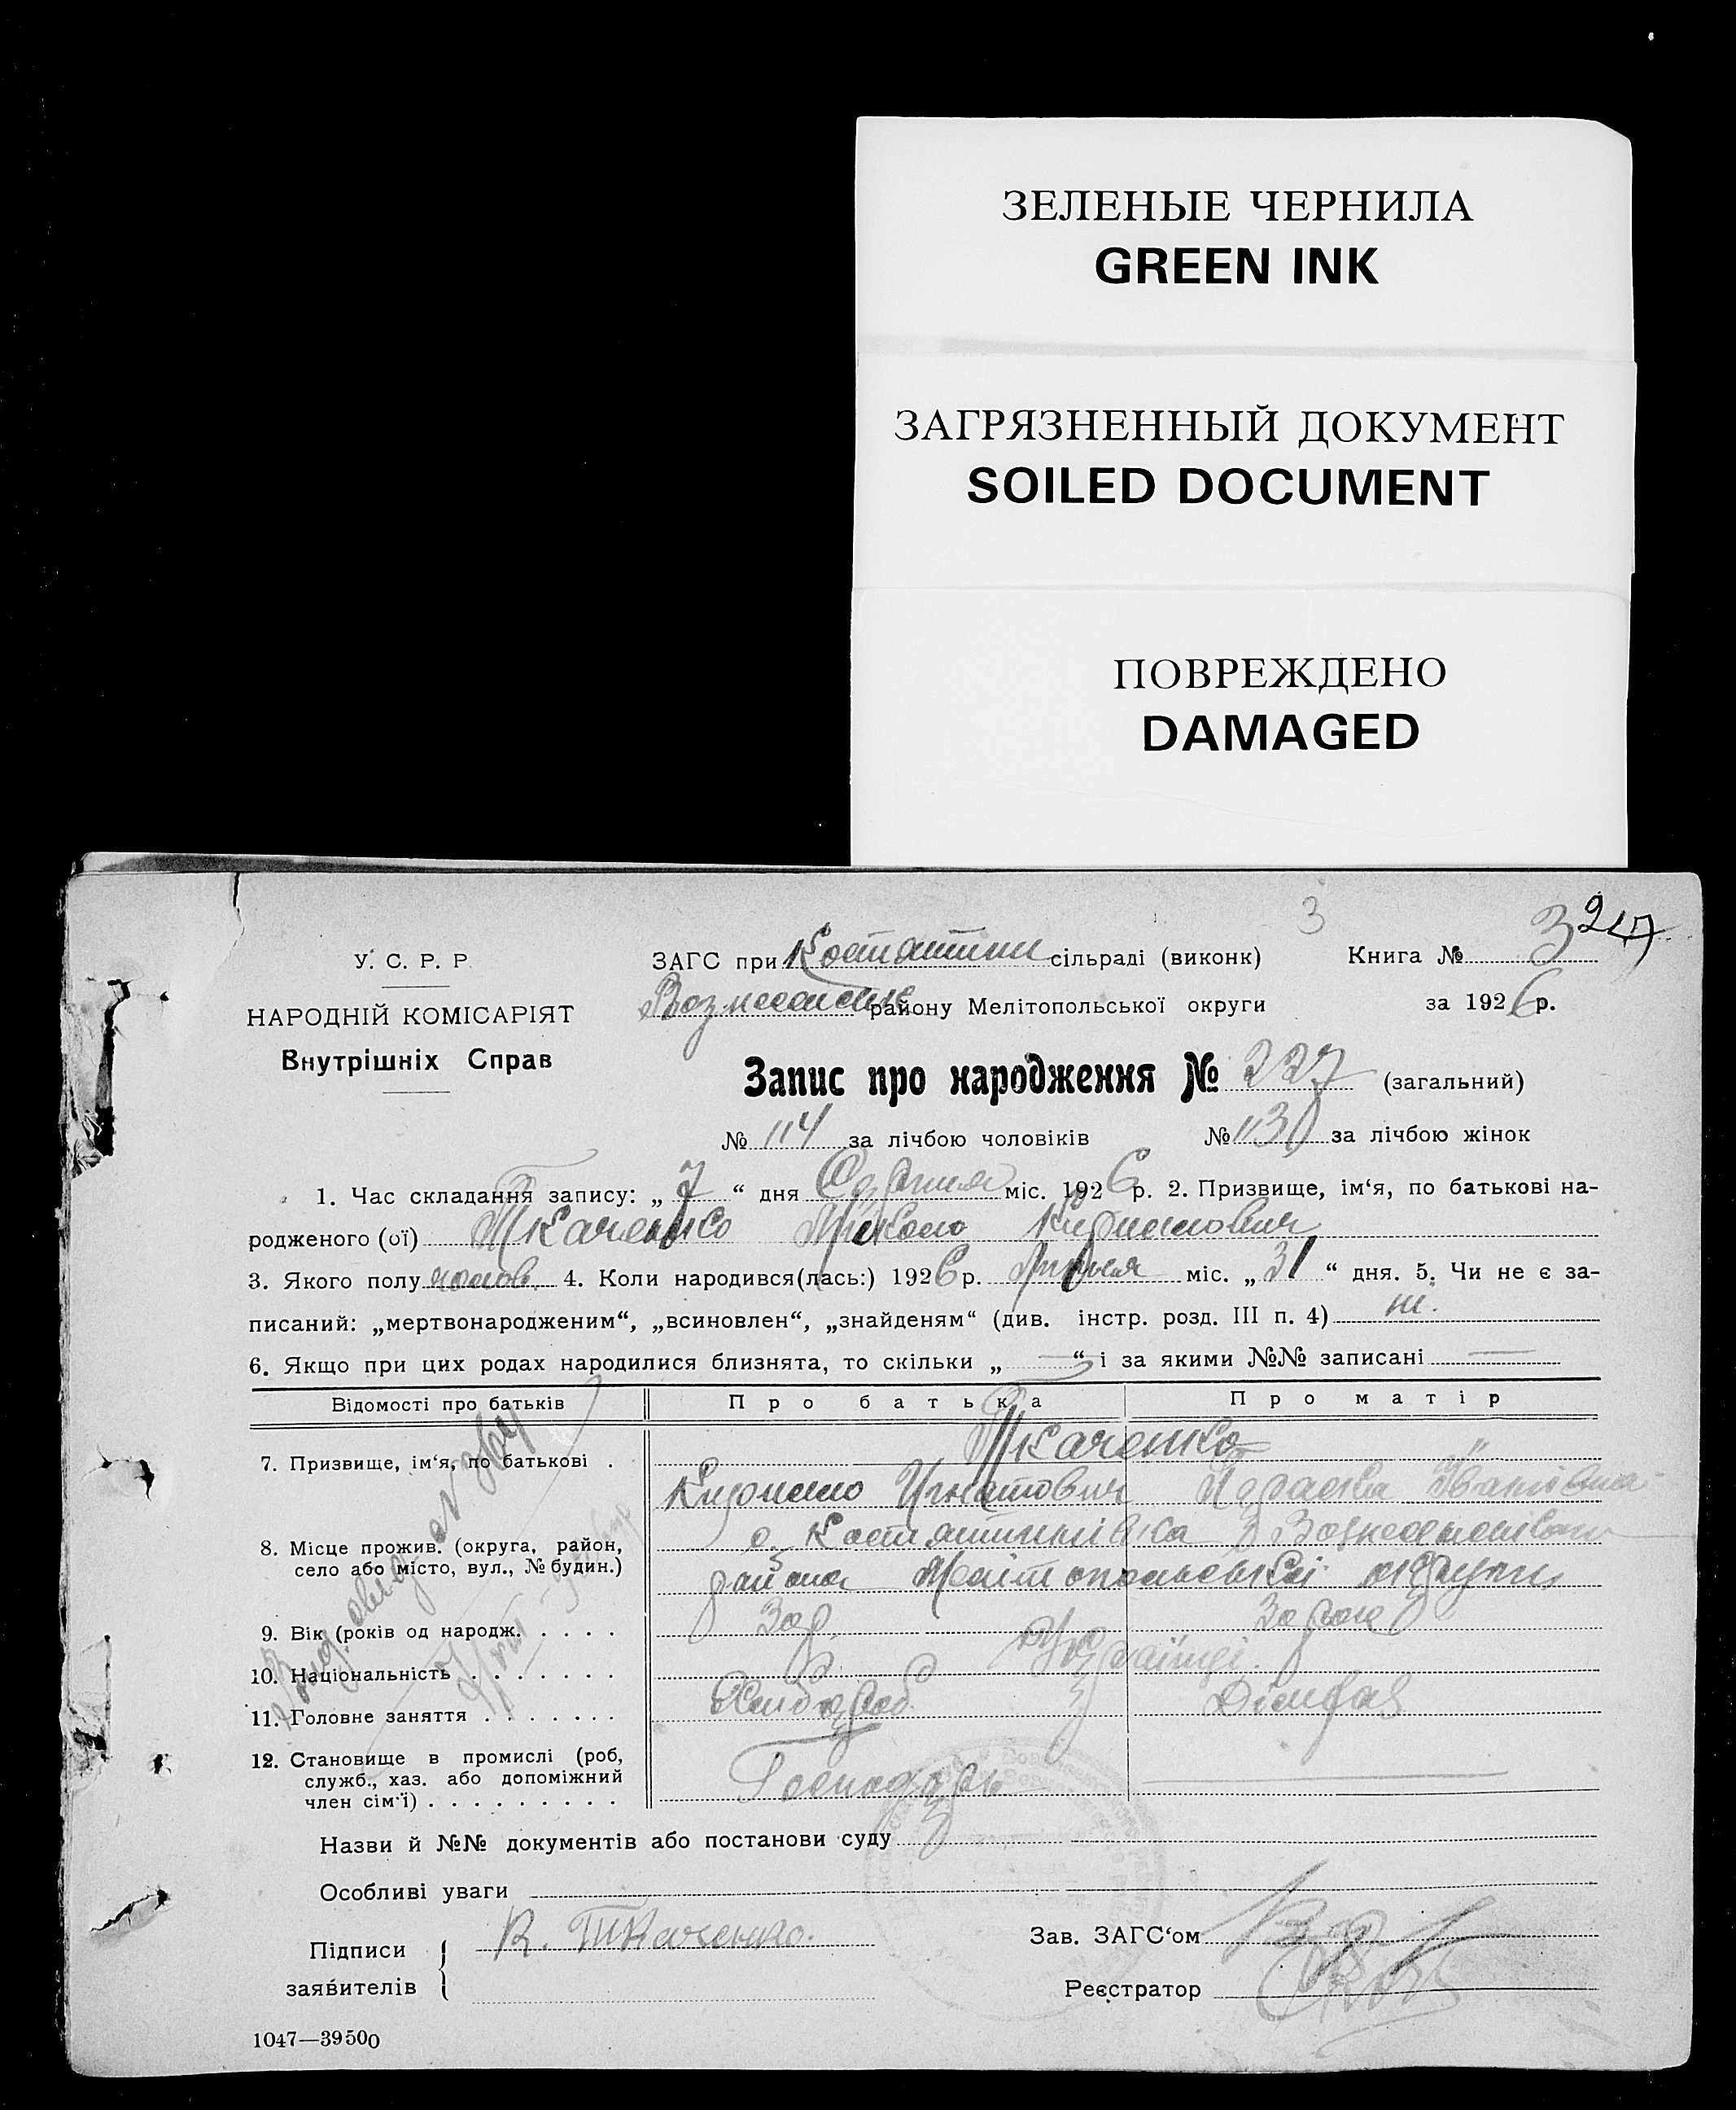 ЗЕЛЕНЫЕ ЧЕРНИЛА
GREEN INK
ЗАГРЯЗНЕННЫЙ ДОКУМЕНТ
SOILED DOCUMENT
ПОВРЕЖДЕНО
DAMAGED
3
У. С. Р. Р.
НАРОДНІЙ КОМІСАРІЯТ
Внутрішніх Справ
ЗАГС при сільраді (виконк) Книга № 3
району Мелітопольської округи за 1926 р.
Запис про народження № 227 (загальний)
№ 114 за лічбою чоловіків № 113 за лічбою жінок
1. Час складання запису: „7“ дня Серпня міс. 1926 р. 2. Призвище, ім‘я, по батькові на-
родженого (ої) Ткаченко Микола
3. Якого полу чолов. 4. Коли народився(лась:) 1926 р. міс. „31“ дня. 5. Чи не є за-
писаний: „мертвонародженим“, „всиновлен“, „знайденям“ (див. інстр. розд. III п. 4) ні.
6. Якщо при цих родах народилися близнята, то скільки „—“ і за якими №№ записані —
Відомості про батьків Про батька Про матір
7. Призвище, ім‘я, по батькові . Ткаченко
Кирило Игнатович Іванівна
8. Місце прожив. (округа, район,
село або місто, вул., № будин.)
с. Костянтинівка
району округи
9. Вік (років од народж. . . . .
10. Національність . . . . . . . Українці.
11. Головне заняття . . . . . . . Хлібороб.
12. Становище в промислі (роб,
служб., хаз. або допоміжний
член сім‘ї) . . . . . . . . . Господарь
Назви й №№ документів або постанови суду
Особливі уваги
Підписи К. Ткаченко. Зав. ЗАГС‘ом
заявителів Реєстратор
1047—39500